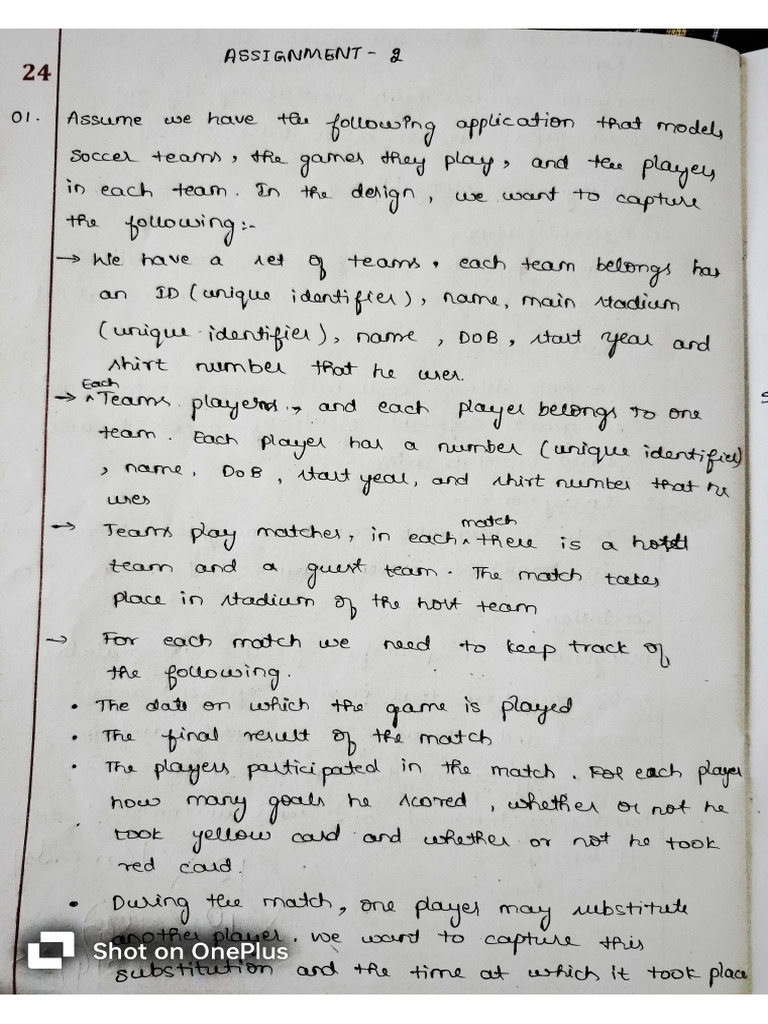 ASSIGNMENT - 2
24
01. Assume we have the following application that models
soccer teams, the games they play, and the players
in each team. In the design, we want to capture
the following:-
→ We have a set of teams, each team belongs has
an ID (unique identifier), name, main stadium
(unique identifier), name, DOB, start year and
shirt number that he uses.
Each
→ ^Teams players, and each player belongs to one
team. Each player has a number (unique identifier)
, name, DoB, start year, and shirt number that he
uses
match
→ Teams play matches, in each ^ there is a host
team and a guest team. The match takes
place in stadium of the host team
→ For each match we need to keep track of
the following.
• The date on which the game is played
• The final result of the match
• The players participated in the match. For each player
how many goals he scored, whether or not he
took yellow card and whether or not he took
red card.
• During the match, one player may substitute
another player. We want to capture this
substitution and the time at which it took place
Shot on OnePlus